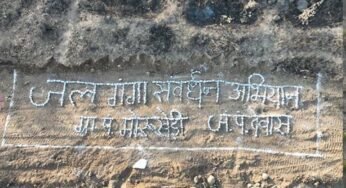 जल गंगा संवर्धन अभियान
ग्रा.प. मारुखेडी ज.प.देवास